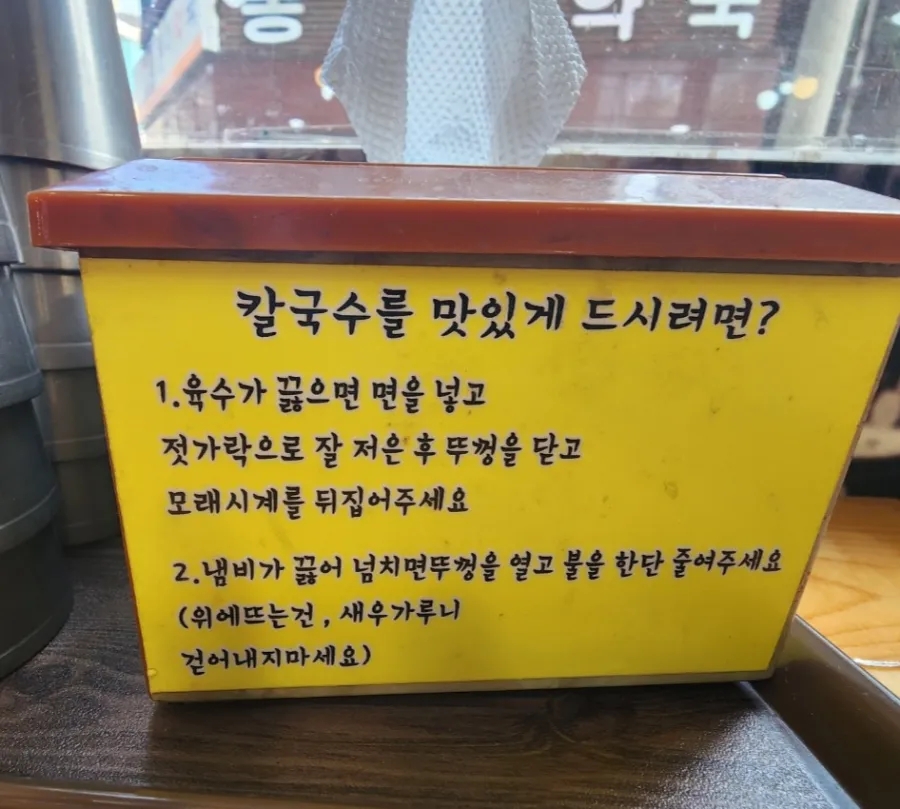 칼국수를 맛있게 드시려면?
1.육수가 끓으면 면을 넣고
젓가락으로 잘 저은 후 뚜껑을 닫고
모래시계를 뒤집어주세요
2.냄비가 끓어 넘치면뚜껑을 열고 불을 한단 줄여주세요
(위에뜨는건, 새우가루니
걷어내지마세요)